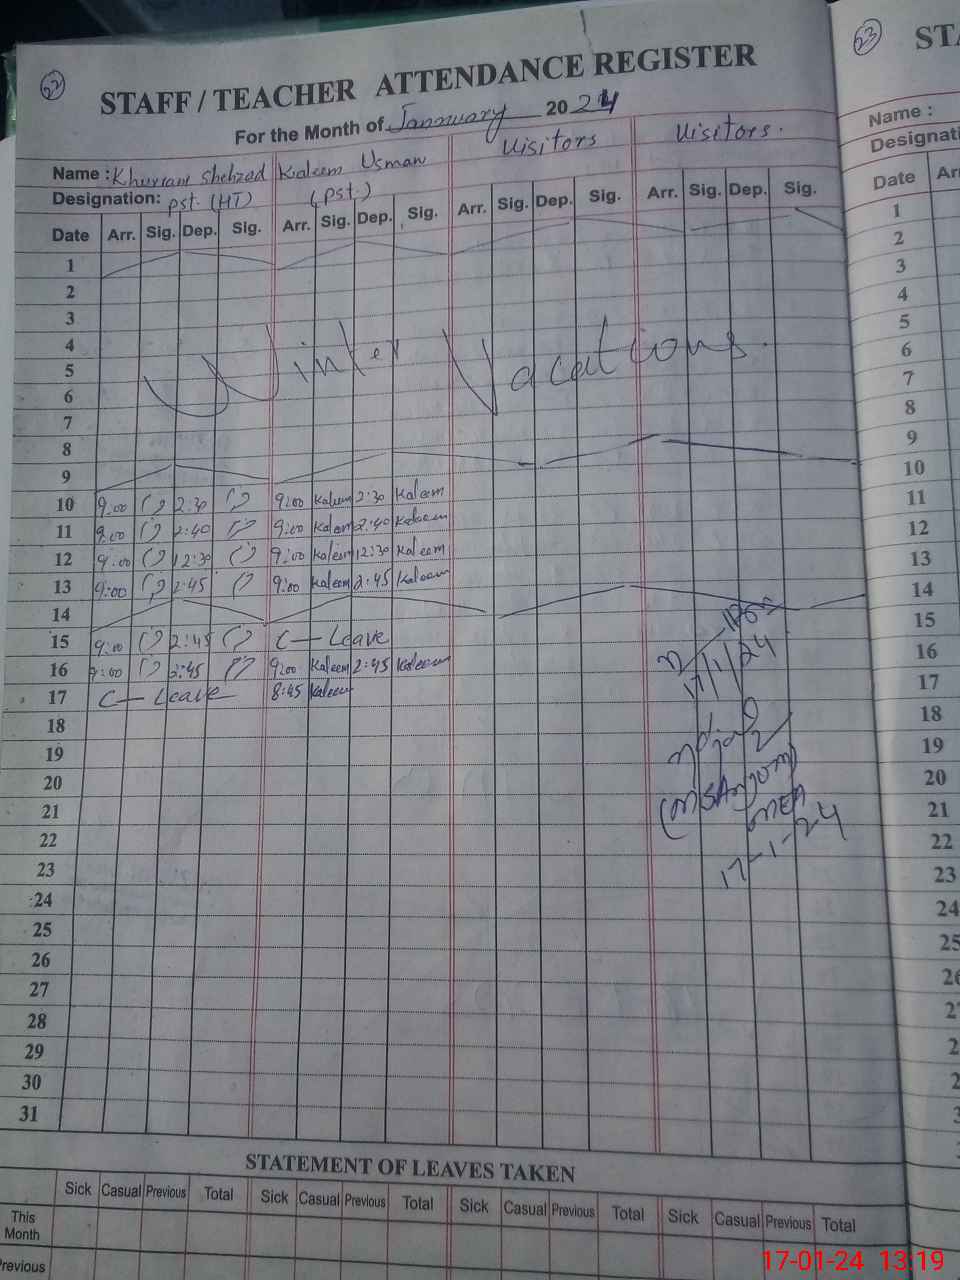 22
STAFF / TEACHER ATTENDANCE REGISTER
For the Month of Jannuary 2024
Name : Khurram Shehzad Kaleem Usman Visitors Visitors.
Designation: pst. (HT) (pst.)
Date Arr. Sig. Dep. Sig. Arr. Sig. Dep. Sig. Arr. Sig. Dep. Sig. Arr. Sig. Dep. Sig.
1
2
3
4
5
6
7
8
Winter Vacations.
9
10 9:00 2:30 9:00 Kaleem 2:30 Kaleem
11 9:00 2:40 9:00 Kaleem 2:40 Kaleem
12 9:00 12:30 9:00 Kaleem 12:30 Kaleem
13 9:00 2:45 9:00 Kaleem 2:45 Kaleem
14
15 9:00 2:45 C — Leave
16 9:00 2:45 9:00 Kaleem 2:45 Kaleem
17 C — Leave 8:45 Kaleem
17/1/24
18
19
20
21
MEA
17-1-24
22
23
24
25
26
27
28
29
30
31
STATEMENT OF LEAVES TAKEN
Sick Casual Previous Total Sick Casual Previous Total Sick Casual Previous Total Sick Casual Previous Total
This Month
Previous
23
STA
Name :
Designati
Date Ar
1
2
3
4
5
6
7
8
9
10
11
12
13
14
15
16
17
18
19
20
21
22
23
24
25
26
2
2
2
3
3
17-01-24 13:19